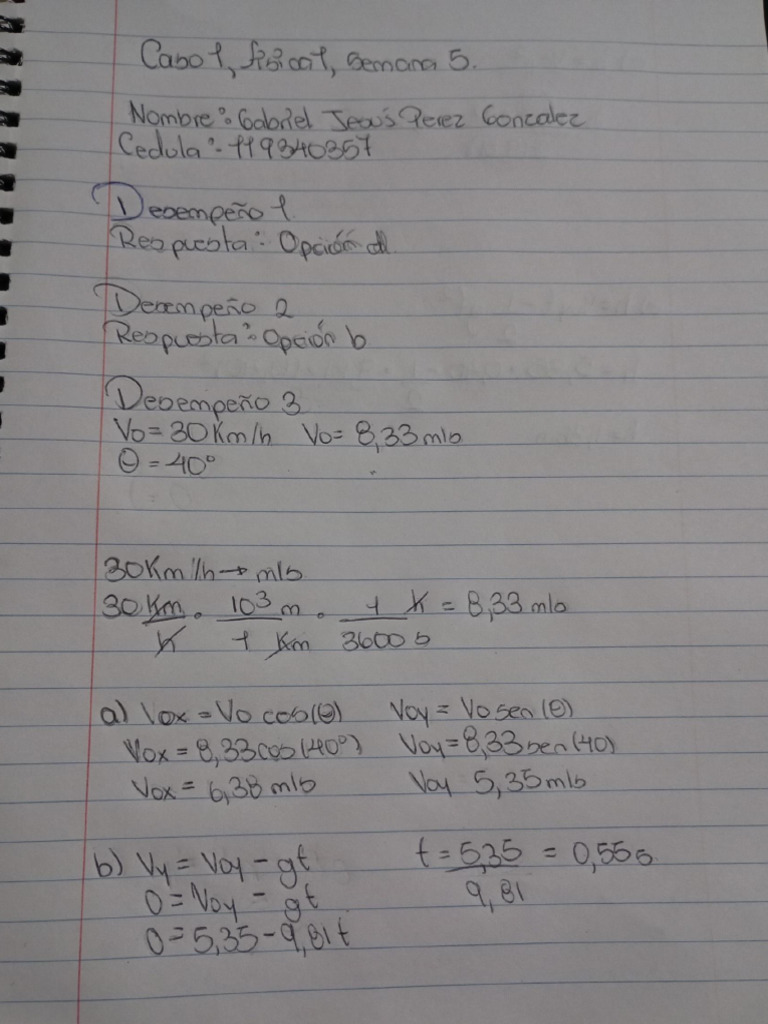 Caso 1, física 1, semana 5.
Nombre: Gabriel Jesús Perez Gonzalez
Cedula: 119340357
Desempeño 1
Respuesta: Opción d
Desempeño 2
Respuesta: Opción b
Desempeño 3
Vo = 30 Km/h Vo = 8,33 m/s
θ = 40°
30 Km/h → m/s
30 Km/h · 10³ m/1 Km · 1 h/3600 s = 8,33 m/s
a) Vox = Vo cos(θ) Voy = Vo sen(θ)
Vox = 8,33 cos(40°) Voy = 8,33 sen(40)
Vox = 6,38 m/s Voy 5,35 m/s
b) Vy = Voy - gt t = 5,35/9,81 = 0,55 s
0 = Voy - gt
0 = 5,35 - 9,81 t